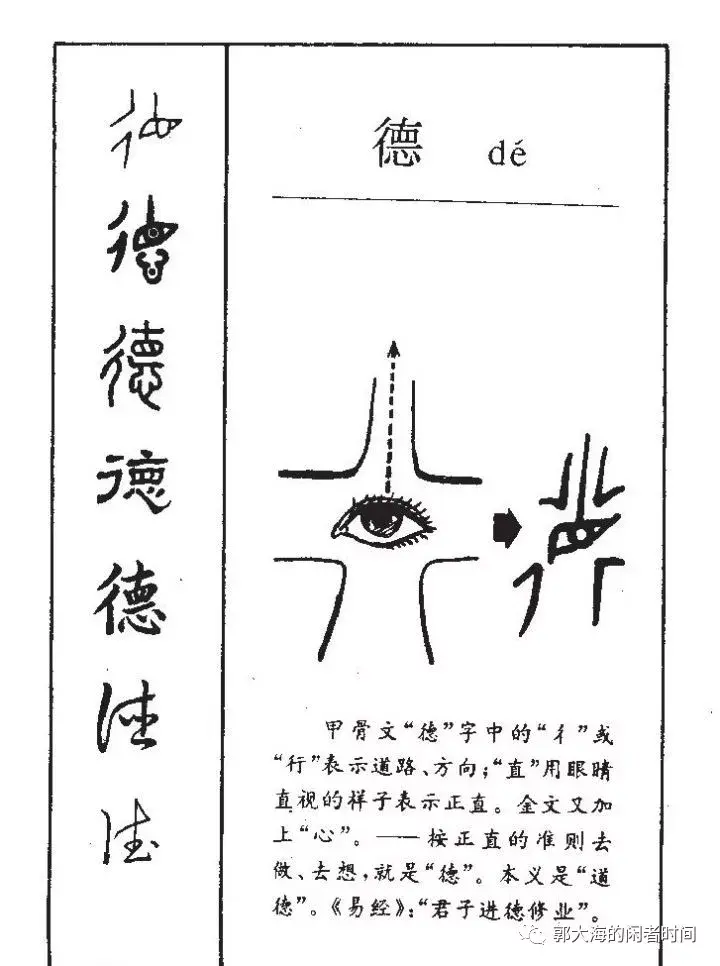 德 dé
德
德
德
德
德
德
德
甲骨文“德”字中的“彳”或
“行”表示道路、方向；“直”用眼睛
直视的样子表示正直。金文又加
上“心”。——按正直的准则去
做、去想，就是“德”。本义是“道
德”。《易经》：“君子进德修业”。
郭大海的闲者时间